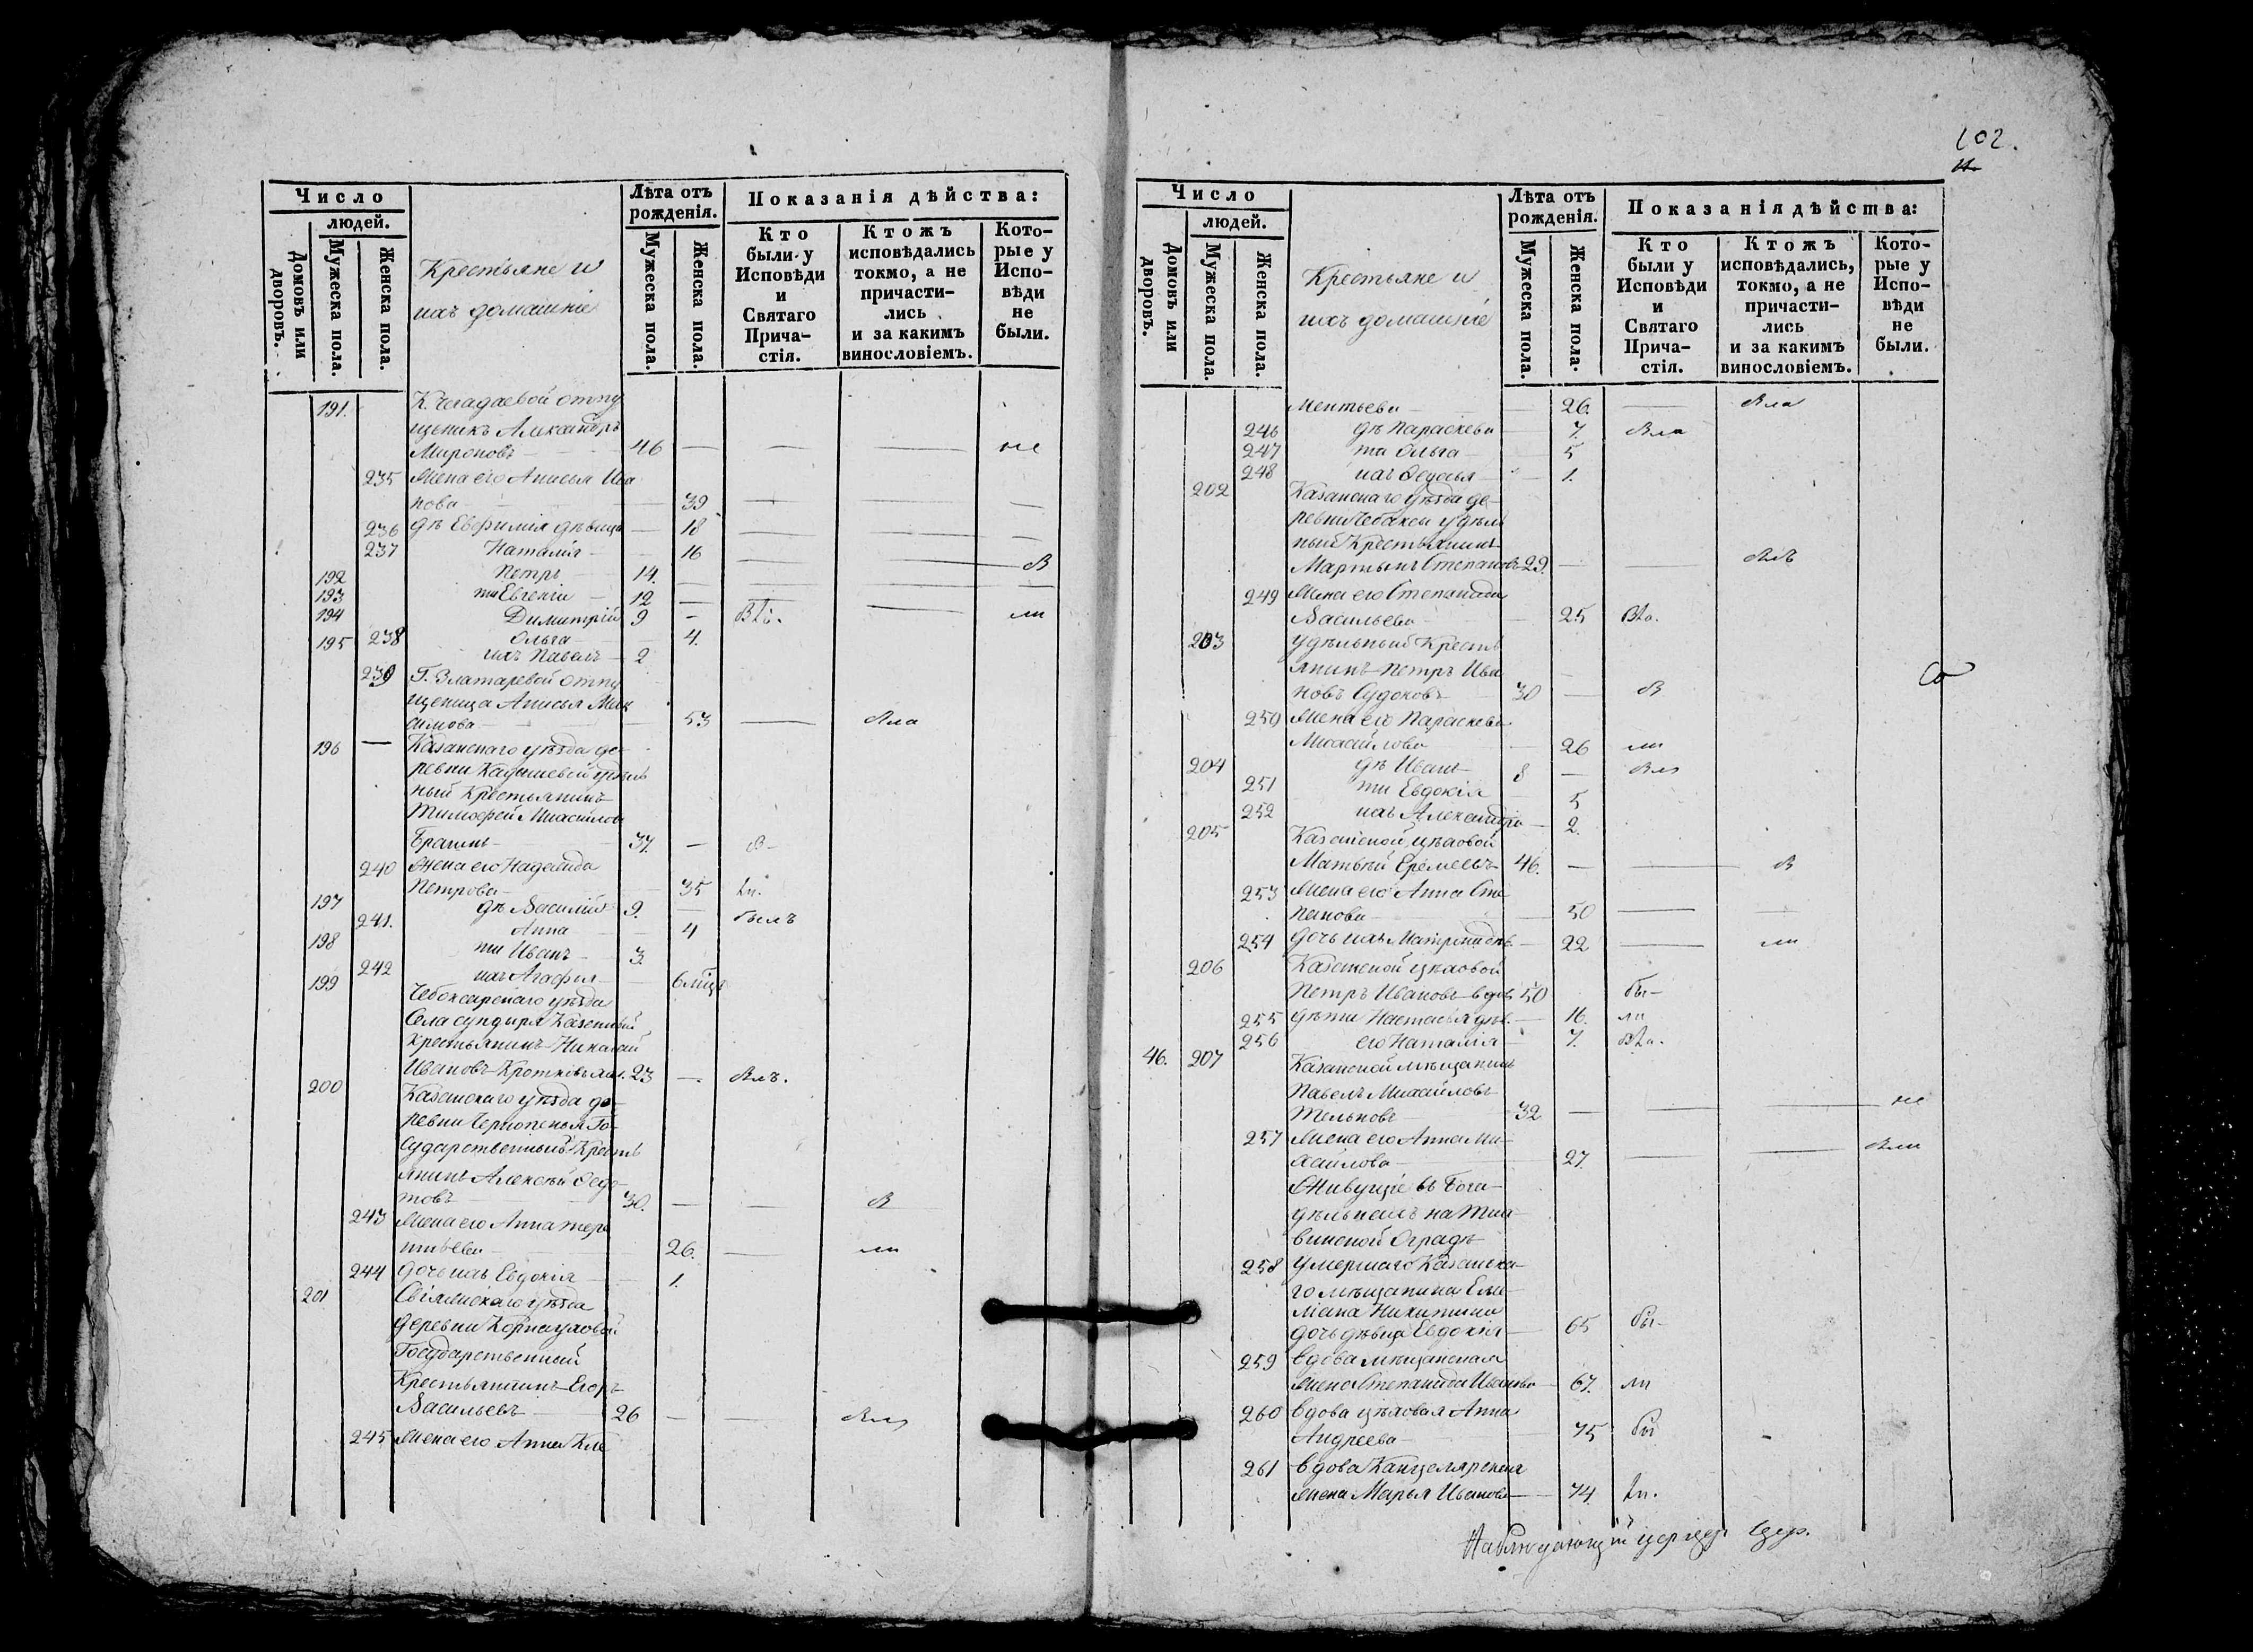 Число
людей.
Домовъ или дворовъ.
Мужеска пола.
Женска пола.
Крестьяне и
ихъ домашніе
Лѣта отъ
рожденія.
Мужеска пола.
Женска пола.
Показанія дѣйства:
Кто
были у
Исповѣди
и
Святаго
Прича-
стія.
Ктожъ
исповѣдались
токмо, а не
причасти-
лись
и за какимъ
винословіемъ.
Кото-
рые у
Испо-
вѣди
не
были.
191. К. Чегадаевой отпу
щеникъ Александръ
Мироновъ 46 — — — не
235 Жена его Анисья Ива
нова — 39 — — —
236 дѣ Евфимія дѣвица — 18 — — —
237 Наталія — 16 — — —
192 Петръ 14. — — — В
193 ти Евгеній 12 — — — —
194 Димитрій 9 — ли
195 238 Ольга — 4.
ихъ Павелъ 2
239 Г. Златаревой отпу
щеница Анисья Мак
симова — 53 — Вла
196 — Казанскаго уѣзда де-
ревни Кадышевой удѣль
ный Крестьянинъ
Тимофей
37. — В-
240 Жена его Надежда
Петрова — 35 ли.
197 дѣ Василій 9. — былъ
241. Анна — 4
198 ти Иванъ 3.
242 ихъ Агафья — 6 мцъ
199 Чебоксарскаго уѣзда
Села Сундыря Казенный
Крестьянинъ Николай
Ивановъ 23 — Влъ.
200 Казанскаго уѣзда де-
ревни Чернопенья Го-
сударственный Кресть
янинъ Алексѣй Ѳедо
товъ 30. — — В
243 Жена его Анна Тере
нтьева — 26. — ли
244 Дочь ихъ Евдокія — 1.
201 Свіяжскаго уѣзда
деревни
Государственный
Крестьянинъ Егоръ
Васильевъ 26 — —
245 Жена его Анна Кле
102.
Число
людей.
Домовъ или дворовъ.
Мужеска пола.
Женска пола.
Крестьяне и
ихъ домашніе
Лѣта отъ
рожденія.
Мужеска пола.
Женска пола.
Показанія дѣйства:
Кто
были у
Исповѣди
и
Святаго
Прича-
стія.
Ктожъ
исповѣдались,
токмо, а не
причасти-
лись
и за какимъ
винословіемъ.
Кото-
рые у
Испо-
вѣди
не
были.
ментьева — 26. — Вла
246 дѣ Параскева — 7. Вла
247 ти Ольга — 5
248 ихъ Ѳедосья — 1.
202 Казанскаго уѣзда де-
ревни Чебаксы удѣль
ный Крестьянинъ
Мартынъ Степановъ 29. — — Влъ
249 Жена его Степанида
Васильева — 25 Вла.
203 Удѣльный Кресть
янинъ Петръ Ива
новъ Судоковъ 30 — В
250 Жена его Параскева
Михайлова — 26 ли
204 дѣ Иванъ 8 —
251 ти Евдокія — 5
252 ихъ Александра — 2.
205 Казанской цѣховой
Матвѣй Еремеевъ 46. — — В
253 Жена его Анна Сте
панова — 50 — —
254 Дочь ихъ Матрона дѣв. — 22 — ли
206 Казанской цѣховой
Петръ Ивановъ вдов 50 бы-
255 Дѣти Настасья дѣв. — 16. ли
256 его Наталія — 7. Вла.
46. 207 Казанской мѣщанинъ
Павелъ Михайловъ
Тельновъ 32 — — — не
257 Жена его Анна Ми-
хайлова — 27. — — Вли
Живущіе въ Бога-
дѣльнѣ
Оградѣ
258 Умершаго Казанска-
го мѣщанина Еме
ліана Никитина
дочь дѣвица Евдокія — 65 бы-
259 Вдова мѣщанская
жена Степанида Иванова — 67. ли
260 Вдова цѣховая Анна
Андреева — 75 бы
261 Вдова Канцелярская
жена Марья Иванова — 74 ли.